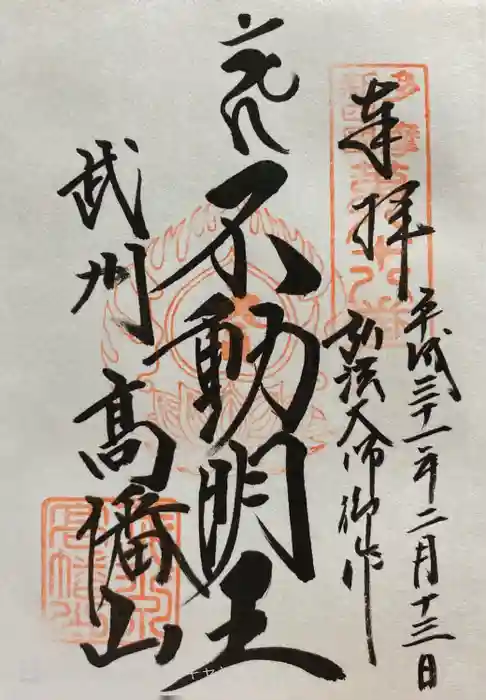 奉拝
平成三十一年二月十三日
弘法大師御作
不動明王
武州
高幡山